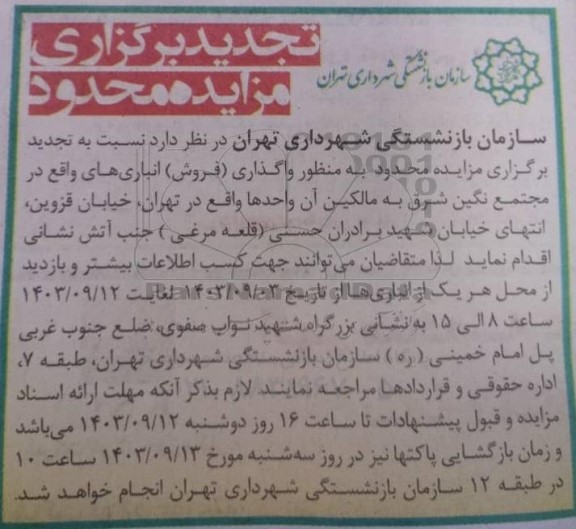 تجدید برگزاری
مزایده محدود
سازمان بازنشستگی شهرداری تهران
سازمان بازنشستگی شهرداری تهران در نظر دارد نسبت به تجدید
برگزاری مزایده محدود به منظور واگذاری (فروش) انباری‌های واقع در
مجتمع نگین شرق به مالکین آن واحدها واقع در تهران، خیابان قزوین،
انتهای خیابان شهید برادران حسنی (قلعه مرغی) جنب آتش نشانی
اقدام نماید لذا متقاضیان می‌توانند جهت کسب اطلاعات بیشتر و بازدید
از محل هر یک از انباری‌ها از تاریخ ۱۴۰۳/۰۹/۰۳ لغایت ۱۴۰۳/۰۹/۱۲
ساعت ۸ الی ۱۵ به نشانی بزرگراه شهید نواب صفوی، ضلع جنوب غربی
پل امام خمینی (ره) سازمان بازنشستگی شهرداری تهران، طبقه ۷،
اداره حقوقی و قراردادها مراجعه نمایند. لازم بذکر آنکه مهلت ارائه اسناد
مزایده و قبول پیشنهادات تا ساعت ۱۶ روز دوشنبه ۱۴۰۳/۰۹/۱۲ می‌باشد
و زمان بازگشایی پاکتها نیز در روز سه‌شنبه مورخ ۱۴۰۳/۰۹/۱۳ ساعت ۱۰
در طبقه ۱۲ سازمان بازنشستگی شهرداری تهران انجام خواهد شد.